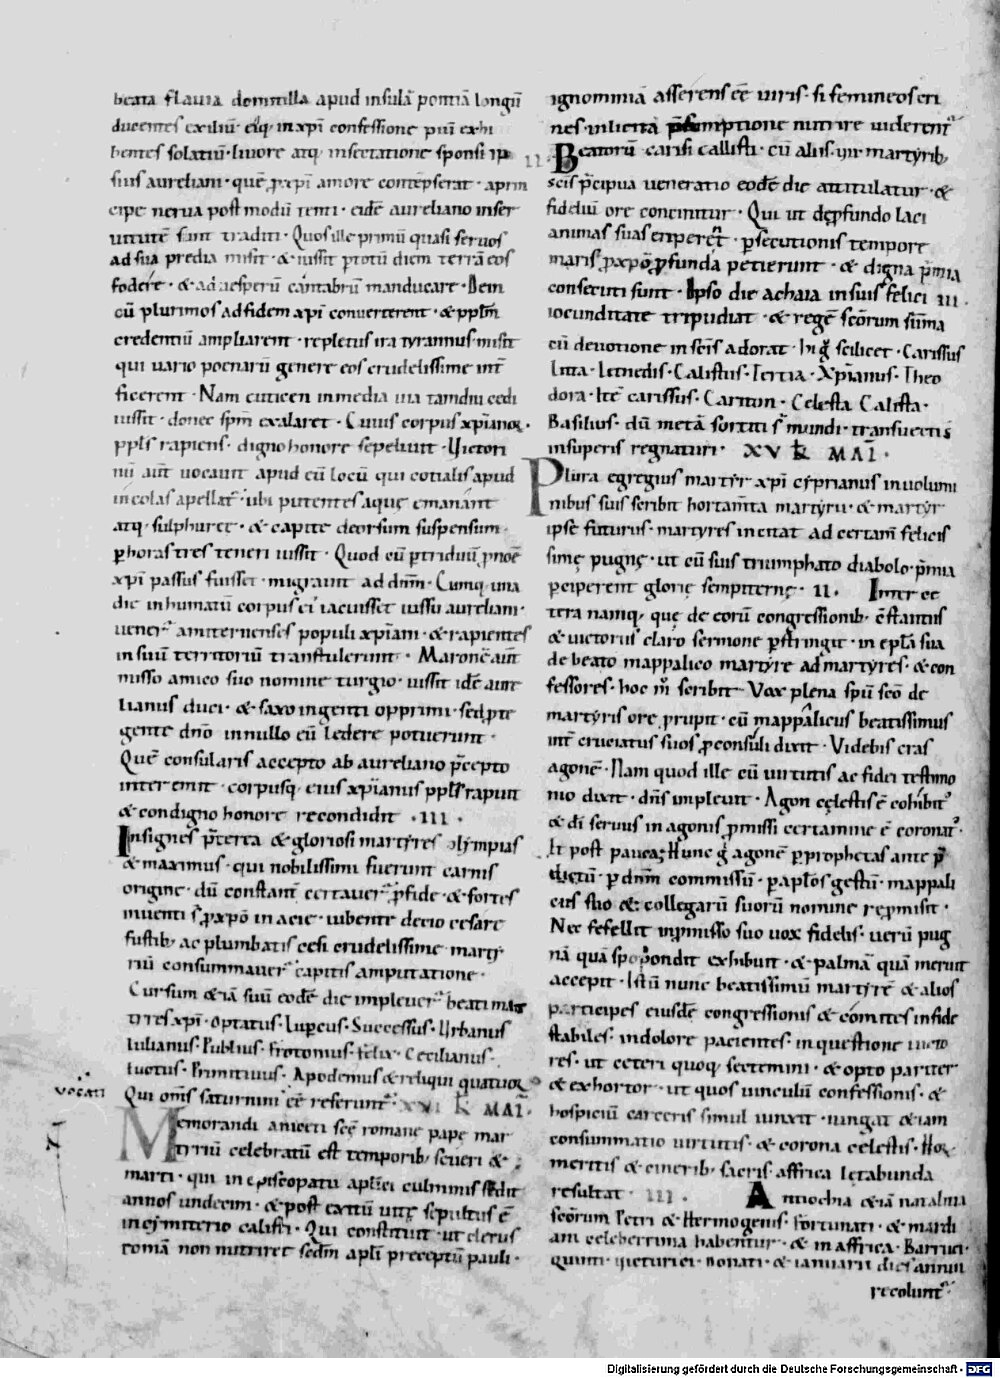 beata flauia domitilla apud insulā pontiā longū
ducentes exiliū· eiq; in xp̄i confessione piū exhi
bentes solatiū· liuore atq; insectatione sponsi ip
sius aureliani· quē ꝓ xp̄i amore contēpserat· a prin
cipe nerua post modū tenti· eidē aureliano inser
uitutē sunt traditi· Quos ille primū quasi seruos
ad sua predia misit· & iussit ꝑ totū diem terrā eos
fodere· & ad uesperū cantabrū manducare· Dein
cū plurimos ad fidem xp̄i conuerterent· & pplm̄
credentiū ampliarent· repletus ira tyrannus misit
qui uario poenarū genere eos crudelissime int̄
ficerent· Nam euticen in media uia tamdiu cedi
iussit· donec spm̄ exalaret· Cuius corpus xp̄ianoꝝ·
ppls̄ rapiens· digno honore sepeliuit· Victori
nū aut̄ uocauit apud eū locū qui cotialis apud
incolas apellat᷑· ubi putentes aquę emanant
atq; sulphuret· & capite deorsum suspensum
ꝑ horas tres teneri iussit· Quod cū ꝑ triduū ꝓ noē
xp̄i passus fuisset· migrauit ad dn̄m· Cumq; una
die inhumatū corpus ei iacuisset iussu aureliani·
uener᷑ amiternenses populi xp̄iani· & rapientes
in suū territoriū transtulerunt· Maronē aut̄
misso amico suo nomine turgio· iussit idē aure
lianus duci· & saxo ingenti opprimi· sed ꝓte
gente dn̄o in nullo eū ledere potuerunt·
Quē consularis accepto ab aureliano p̄cepto
interemit· corpusq; eius xp̄ianus ppls̄ rapuit
& condigno honore recondidit· III·
Insignes p̄terea & gloriosi martyres olympias
& maximus· qui nobilissimi fuerunt carnis
origine· dū constant̄ certauer᷑ ꝓ fide· & fortes
inuenti s̄ ꝓ xp̄o in acie· iubente decio cesare
fustib; ac plumbatis cesi crudelissime marty
riū consummauer᷑ capitis amputatione·
Cursum & iā suū eodē die impleuer᷑ beati mar
tyres xp̄i· Optatus· Lupercus· Successus· Urbanus
Iulianus· Publius· Frotonius· Felix· Cecilianus·
Euotus· Primitiuus· Apodemus & reliqui quatuoꝝ
uocati
Qui om̄s saturnini eē referunt᷑· XVI k̄ MAI·
Memorandi aniceti scē romane pape mar
tyriū celebratū est temporib; seueri &
marci· qui in episcopatu apl̄ici culminis sedit
annos undecim· & post exitū uitę sepultus ē
in cymiterio calisti· Qui constituit· ut clerus
comā non nutriret scdm̄ apl̄i preceptū pauli·
ignominiā asserens eē uiris· si femineos cri
nes inlicita p̄sumptione nutrire uiderent᷑
II· Beatorū carisi callisti· cū aliis VII martyrib;
scīs p̄cipua ueneratio eodē die attitulatur· &
fideliū ore concinitur· Qui ut de ꝓfundo laci
animas suas eriperent· ꝑsecutionis tempore
maris ꝓ xp̄o ꝓfunda petierunt· & digna p̄mia
consecuti sunt· Ipso die achaia in suis felici III·
iocunditate tripudiat· & regē scōrum sūma
cū deuotione in scīs adorat· Hi g̊ scilicet· Carissus
Litta· Leonedis· Calistus· Tertia· Xp̄ianus· Theo
dora· Itē carissus· Cariton· Celesta Calista·
Basilius· dū metā sortiti s̄ mundi transuectis
in superis regnaturi· XV k̄ MAI·
Plura egregius martyr xp̄i cyprianus in uolumi
nibus suis scribit hortam̄ta martyrii· & martyr
ipse futurus· martyres incitat ad certam̄ felicis
simę pugnę· ut cū suis triumphato diabolo· p̄mia
ꝑciperent glorię sempiternę· II· Inter ce
tera namq; que de eorū congressionib; ēstantis
& uictoriis claro sermone ꝑstringit· in epl̄a sua
de beato mappalico martyre ad martyres· & con
fessores· hoc m̊ scribit· Vox plena spū scō de
martyris ore prupit· cū mappalicus beatissimus
int̄ cruciatus suos ꝓconsuli dixit· Videbis cras
agonē· Nam quod ille cū uirtutis ac fidei testimo
nio dixit· dn̄s impleuit· Agon cęlestis ē cohibit᷑
& dī seruus in agonis ꝓmissi certamine ē coronat᷑·
Et post pauca; Hunc g̊ agonē ꝑ prophetas ante p̄
dictū· ꝑ dn̄m commissū· ꝑ apl̄os gestū· mappali
cus suo & collegarū suorū nomine reꝓmisit·
Nec fefellit in ꝓmisso suo uox fidelis· uerū pug
nā quā spopondit exhibuit· & palmā quā meruit
accepit· Istū nunc beatissimū martyrē & alios
participes eiusdē congressionis & comites in fide
stabiles· in dolore pacientes· in questione uicto
res· ut ceteri quoq; sectemini· & opto pariter
& exhortor· ut quos uinculū confessionis· &
hospiciū carceris simul iunxit· iungat & iam
consummatio uirtutis· & corona cęlestis· Hoꝝ
meritis & cinerib; sacris affrica lętabunda
resultat· III· Antiochia & iā natalitia
scōrum Petri & Hermogenis· Fortunati· & mardi
ani celeberrima habentur· & in affrica· Barruci
quinti· Victurici· Donati· & ianuarii dies annui
recolunt᷑
Digitalisierung gefördert durch die Deutsche Forschungsgemeinschaft - DFG